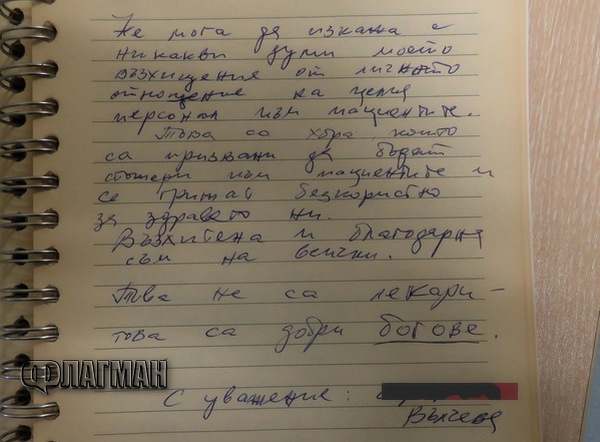 Не мога да изкажа с
никакви думи моето
възхищение от личното
отношение на целия
персонал към пациентите.
Това са хора които
са призвани да бъдат
към пациентите и
се грижат безкористно
за здравето ни.
Възхитена и благодарна
съм на всички.
Това не са лекари –
това са добри богове.
ФЛАГМАН
С уважение:
Вълчева